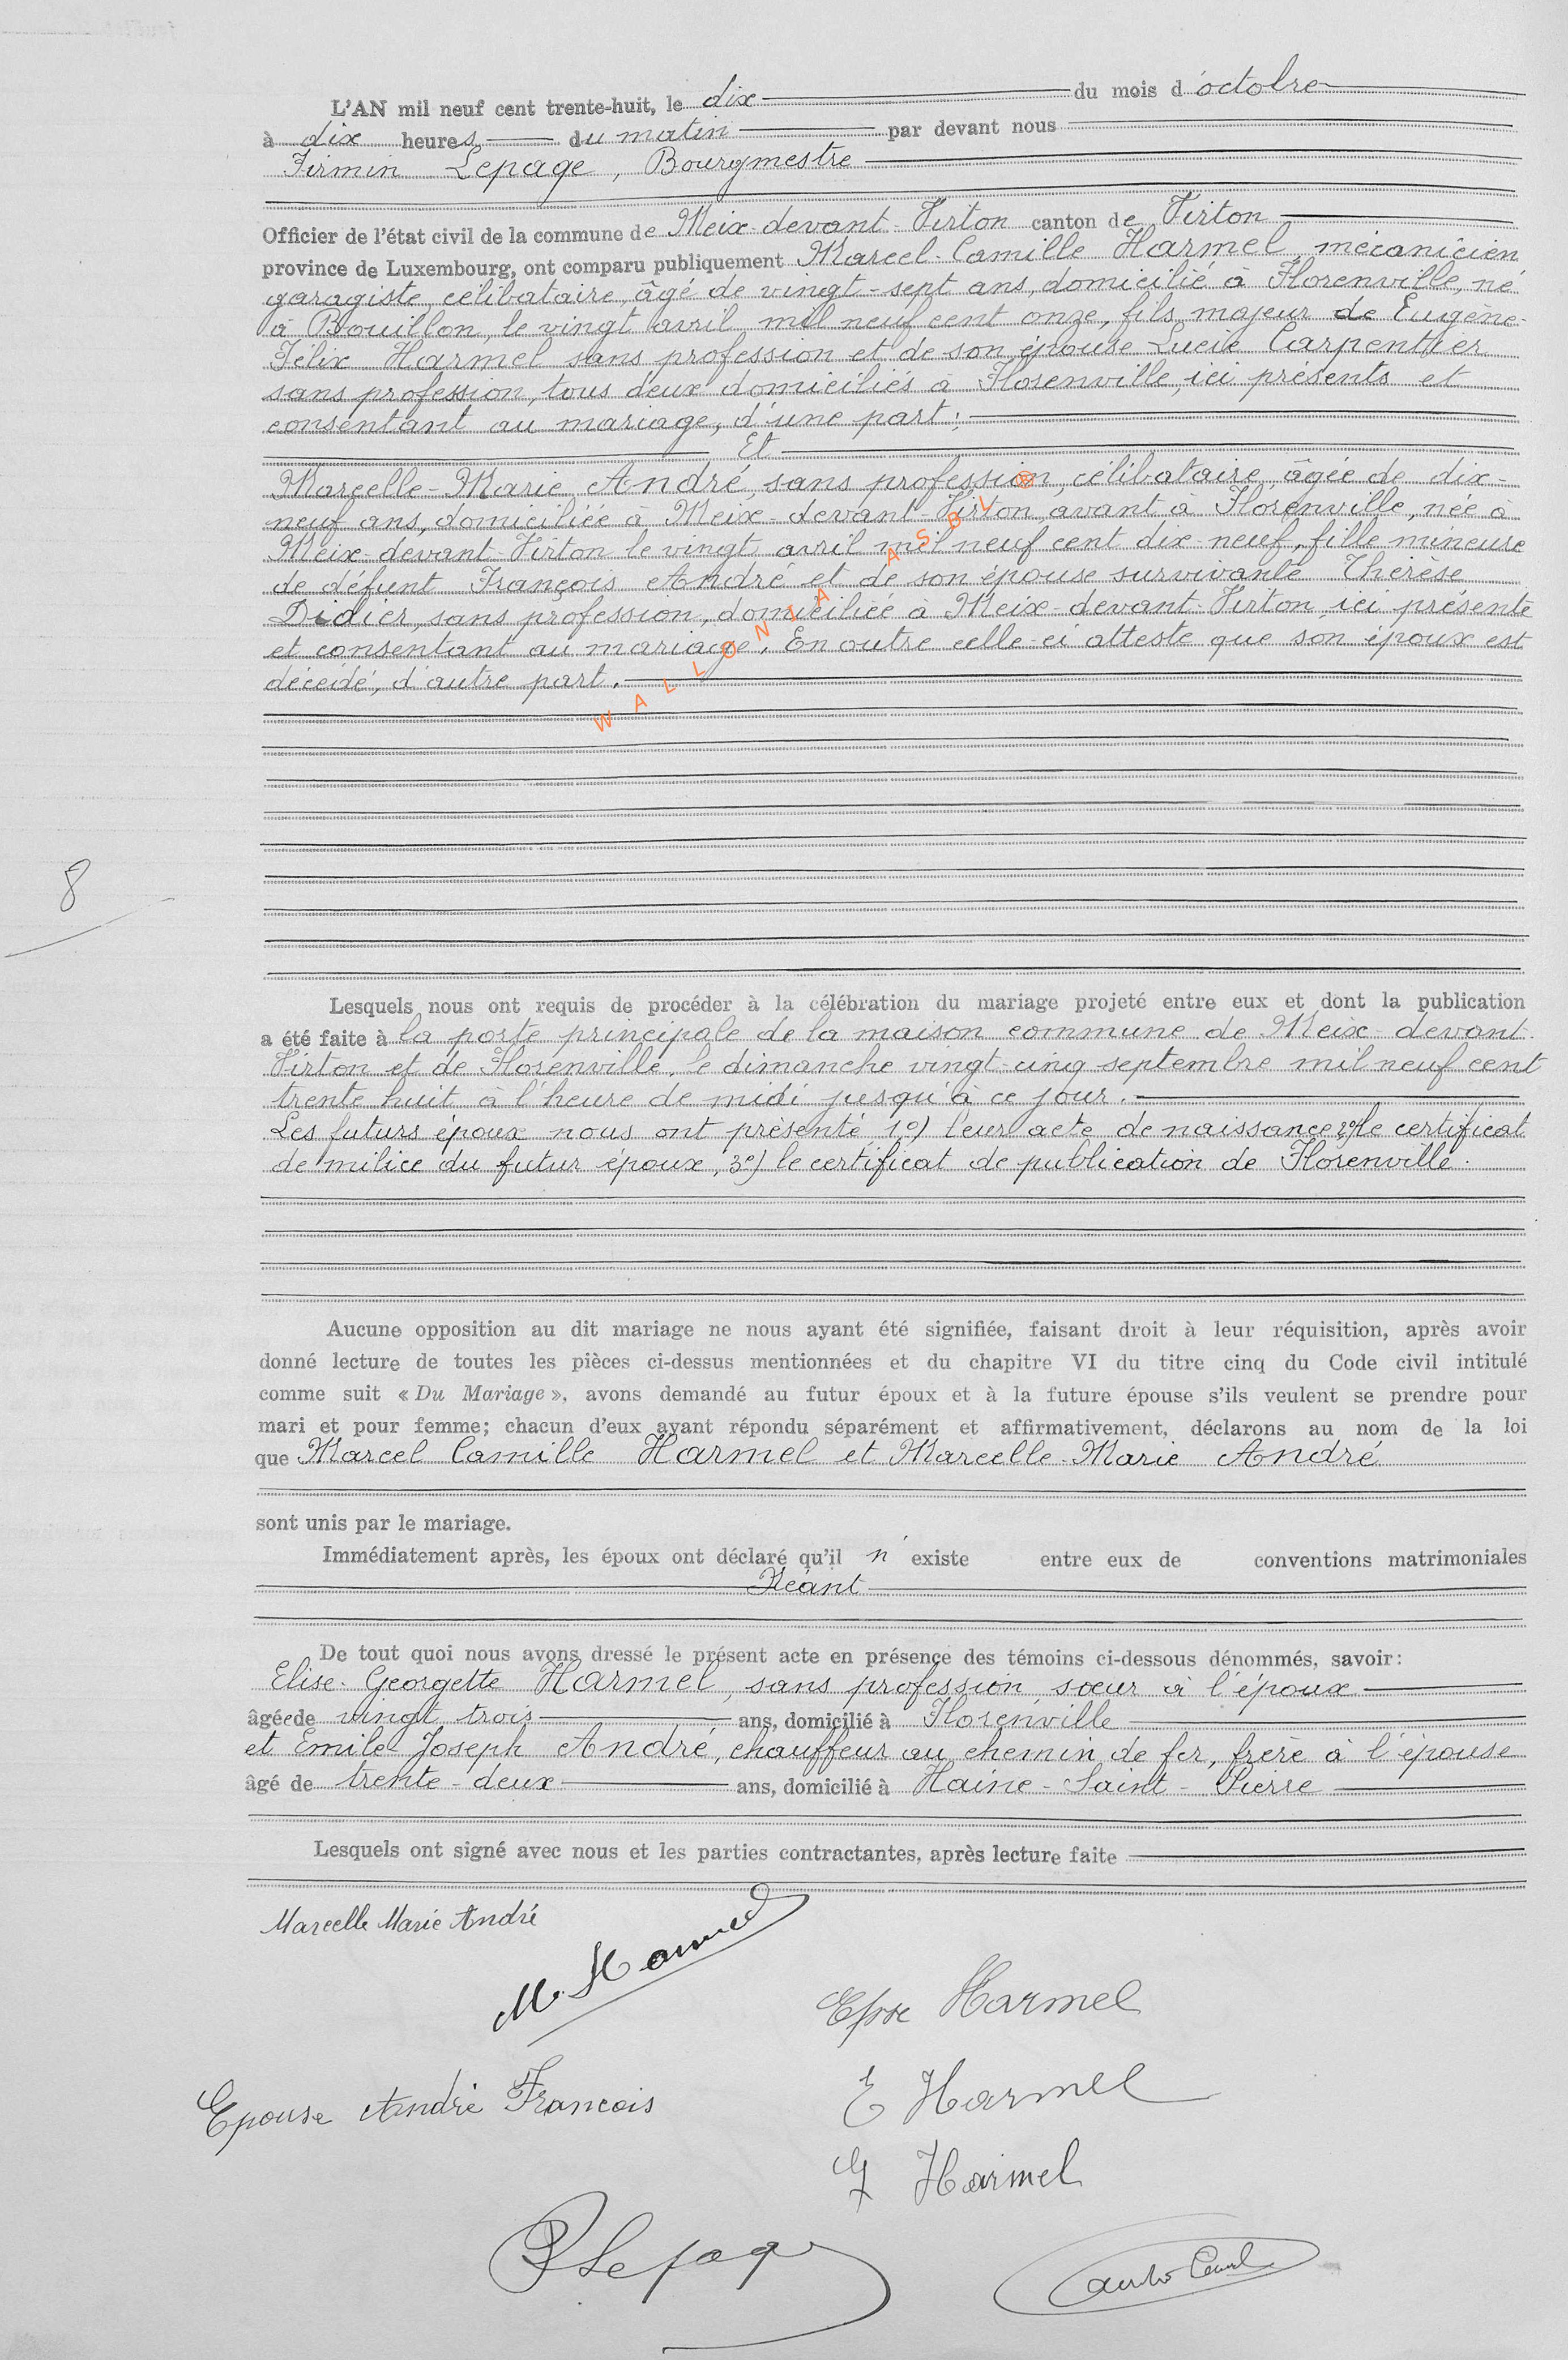 L'AN mil neuf cent trente-huit, le dix du mois d'octobre
à dix heures du matin par devant nous
Firmin Lepage, Bourgmestre
Officier de l'état civil de la commune de Meix-devant-Virton canton de Virton
province de Luxembourg, ont comparu publiquement Marcel-Camille Harmel, mécanicien
garagiste, célibataire, âgé de vingt-sept ans, domicilié à Florenville, né
à Bouillon, le vingt avril mil neuf cent onze, fils majeur de Eugène-
Félix Harmel sans profession et de son épouse Lucie Carpentier
sans profession, tous deux domiciliés à Florenville, ici présents et
consentant au mariage, d'une part;
Et
Marcelle-Marie André, sans profession, célibataire, âgée de dix-
neuf ans, domiciliée à Meix-devant-Virton, avant à Florenville, née à
Meix-devant-Virton le vingt avril mil neuf cent dix-neuf, fille mineure
de défunt François André et de son épouse survivante Thérèse
Didier, sans profession, domiciliée à Meix-devant-Virton, ici présente
et consentant au mariage. En outre celle-ci atteste que son époux est
décédé, d'autre part.
WALLONIA ASBL
8
Lesquels nous ont requis de procéder à la célébration du mariage projeté entre eux et dont la publication
a été faite à la porte principale de la maison commune de Meix-devant-
Virton et de Florenville, le dimanche vingt-cinq septembre mil neuf cent
trente huit à l'heure de midi jusqu'à ce jour.
Les futurs époux nous ont présenté 1°) leur acte de naissance 2°) le certificat
de milice du futur époux, 3°) le certificat de publication de Florenville.
Aucune opposition au dit mariage ne nous ayant été signifiée, faisant droit à leur réquisition, après avoir
donné lecture de toutes les pièces ci-dessus mentionnées et du chapitre VI du titre cinq du Code civil intitulé
comme suit « Du Mariage », avons demandé au futur époux et à la future épouse s'ils veulent se prendre pour
mari et pour femme; chacun d'eux ayant répondu séparément et affirmativement, déclarons au nom de la loi
que Marcel Camille Harmel et Marcelle-Marie André
sont unis par le mariage.
Immédiatement après, les époux ont déclaré qu'il n'existe entre eux de conventions matrimoniales
Néant
De tout quoi nous avons dressé le présent acte en présence des témoins ci-dessous dénommés, savoir:
Elise-Georgette Harmel, sans profession, sœur à l'époux
âgée de vingt trois ans, domicilié à Florenville
et Emile Joseph André, chauffeur au chemin de fer, frère à l'épouse
âgé de trente-deux ans, domicilié à Haine-Saint-Pierre
Lesquels ont signé avec nous et les parties contractantes, après lecture faite
Marcelle Marie André
M. Harmel
Epse Harmel
Epouse André Francois
E Harmel
G Harmel
Lepage